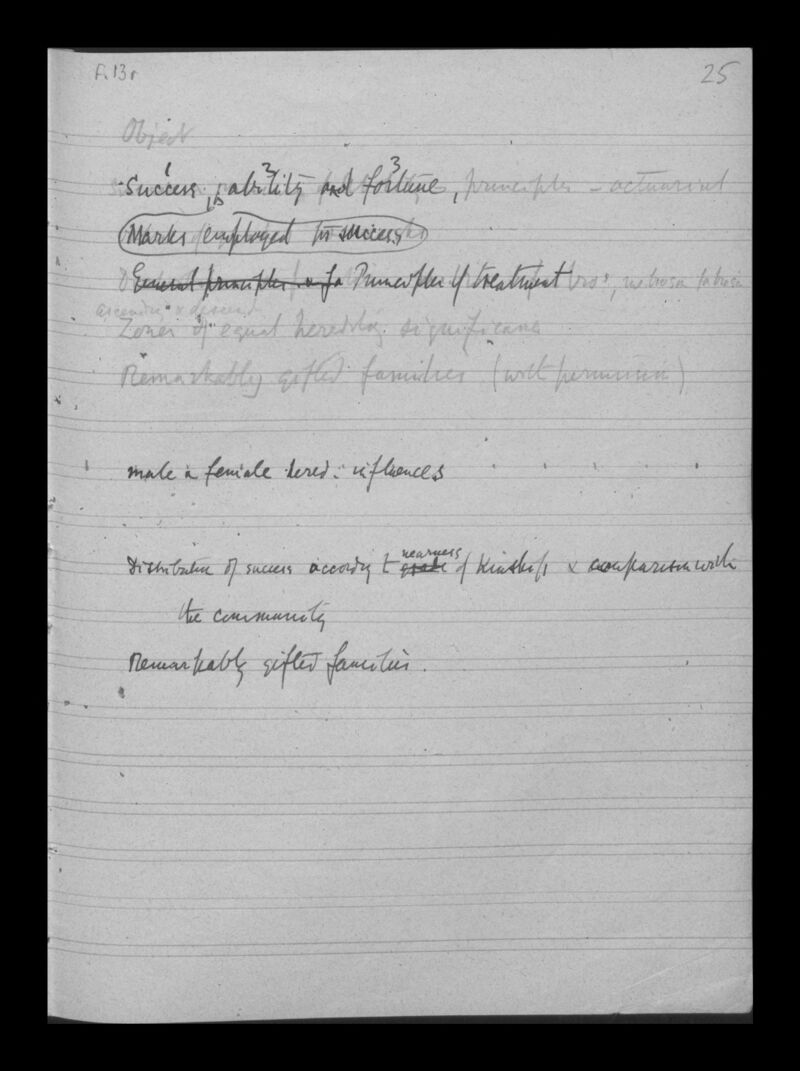 f. 13r 25
Object
1 2 3
Success, ability and fortune, principles - actuarial
Marks employed for success
General principles Principles of treatment bros,
ascendg & descend
Zones of equal heredity significance
Remarkably gifted families (with permission)
male & female hered: influences
nearness
Distribution of success according to grade of Kinship & comparison with
the community
Remarkably gifted families.